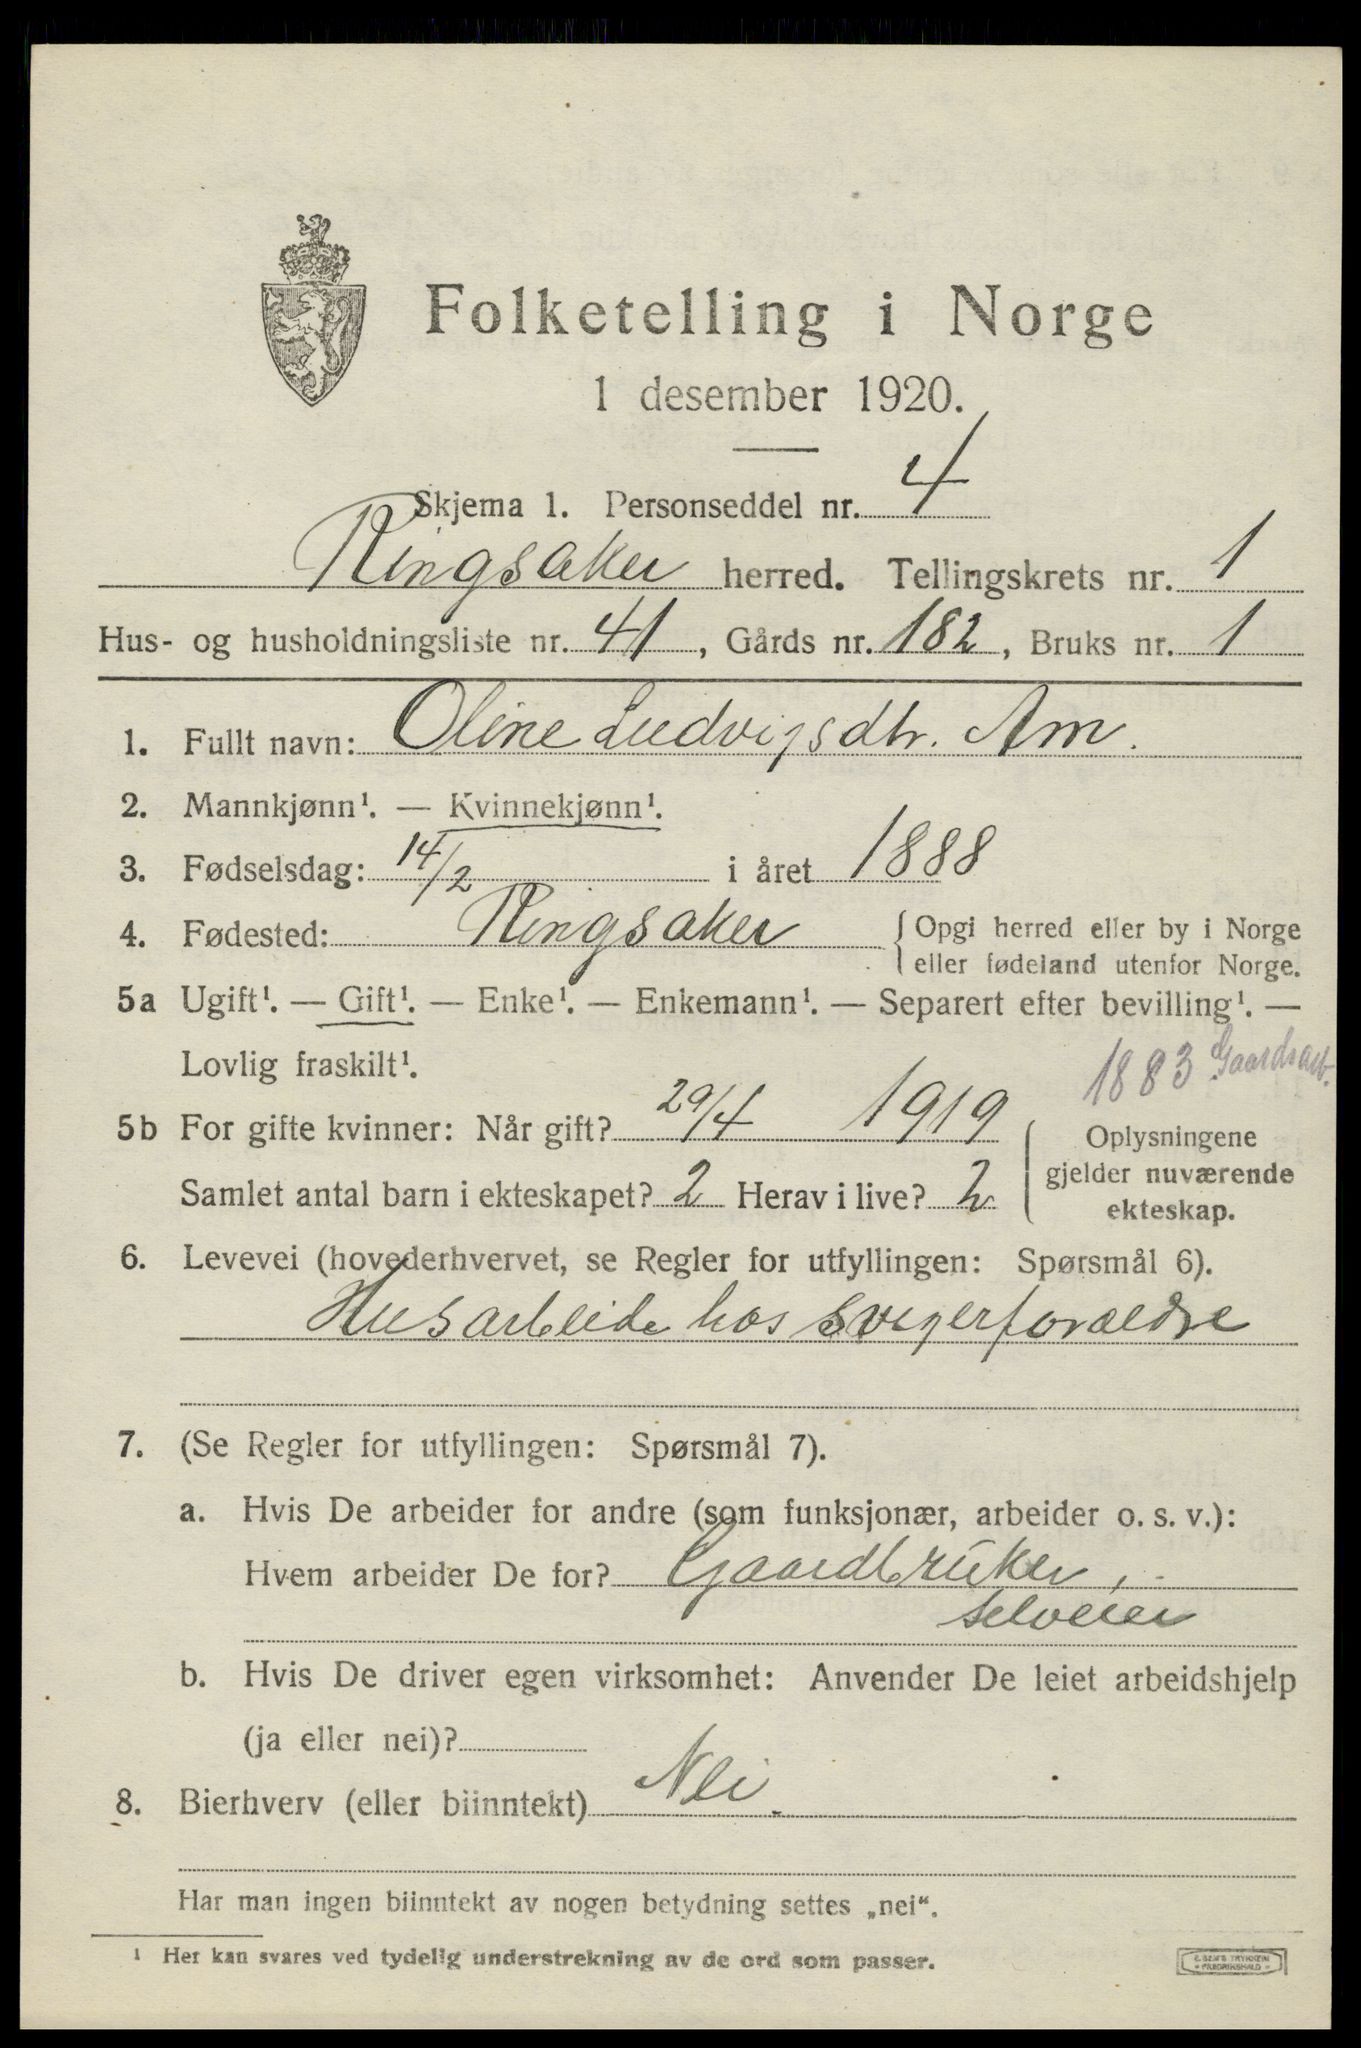 Folketelling i Norge
1 desember 1920.
Skjema 1. Personseddel nr. 4
Ringsaker herred. Tellingskrets nr. 1
Hus- og husholdningsliste nr. 41, Gårds nr. 182, Bruks nr. 1
1. Fullt navn: Oline Ludvigsdtr. Am.
2. Mannkjønn¹. — Kvinnekjønn¹.
3. Fødselsdag: 14/2 i året 1888
4. Fødested: Ringsaker { Opgi herred eller by i Norge
eller fødeland utenfor Norge.
5a Ugift¹. — Gift¹. — Enke¹. — Enkemann¹. — Separert efter bevilling¹. —
Lovlig fraskilt¹.
1883 Gaardsarb.
5b For gifte kvinner: Når gift? 29/4 1919
Samlet antal barn i ekteskapet? 2 Herav i live? 2
Oplysningene
gjelder nuværende
ekteskap.
6. Levevei (hovederhvervet, se Regler for utfyllingen: Spørsmål 6).
Husarbeide hos svigerforældre
7. (Se Regler for utfyllingen: Spørsmål 7).
a. Hvis De arbeider for andre (som funksjonær, arbeider o. s. v.):
Hvem arbeider De for? Gaardbruker,
selveier
b. Hvis De driver egen virksomhet: Anvender De leiet arbeidshjelp
(ja eller nei)?
8. Bierhverv (eller biinntekt) Nei.
Har man ingen biinntekt av nogen betydning settes „nei“.
¹ Her kan svares ved tydelig understrekning av de ord som passer.
E. SEM'S TRYKKERI
FREDRIKSHALD